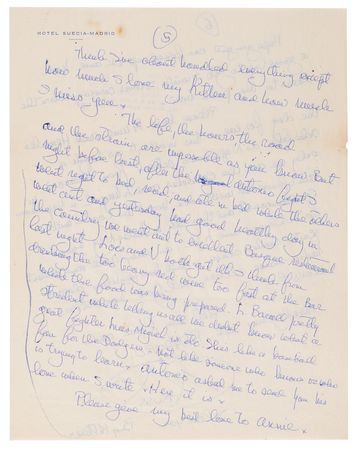 HOTEL SUECIA-MADRID
5
Think I've about handled everything except
how much I love my Kitten and how much
I miss you.
The life, the hours, the road
and the strain are impossible as you know. But
night before last, after the Antonio fight I
went right to bed, read, and ate in bed while the others
went out and yesterday had good healthy day in
the country. We went out to excellent Basque restaurant
last night. and I both got
drinking the too heavy red wine too fast at the bar
while the food was being prepared. L. Bacall pretty
strident while telling us all we didn't know what a
great fighter Luis Miguel is. It's like a baseball
fan for the Dodgers. Not like someone who knows or who
is trying to learn. Antonio asked me to send you his
love when I wrote. Here it is.
Please give my best love to